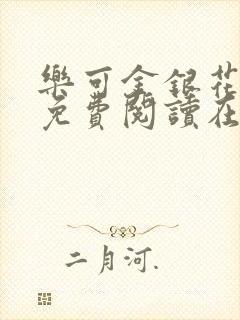 樂可金銀花
免費閱讀在
二月河.